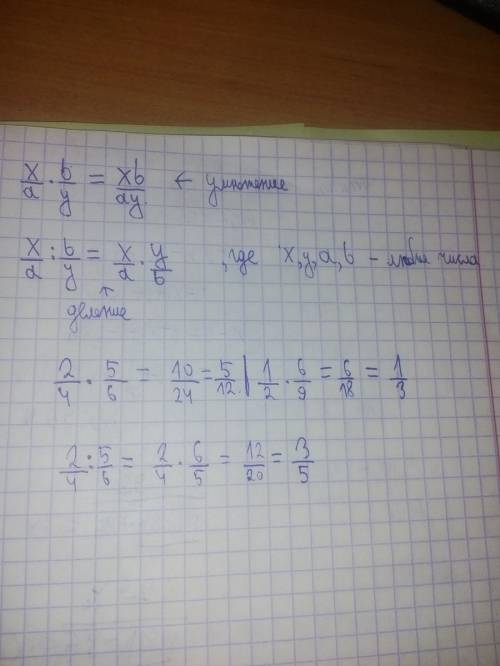 x/a · b/y = xb/ay ← умножение
x/a : b/y = x/a · y/b , где x, y, a, b – любые числа
↑
деление
2/4 · 5/6 = 10/24 = 5/12. | 1/2 · 6/9 = 6/18 = 1/3
2/4 : 5/6 = 2/4 · 6/5 = 12/20 = 3/5